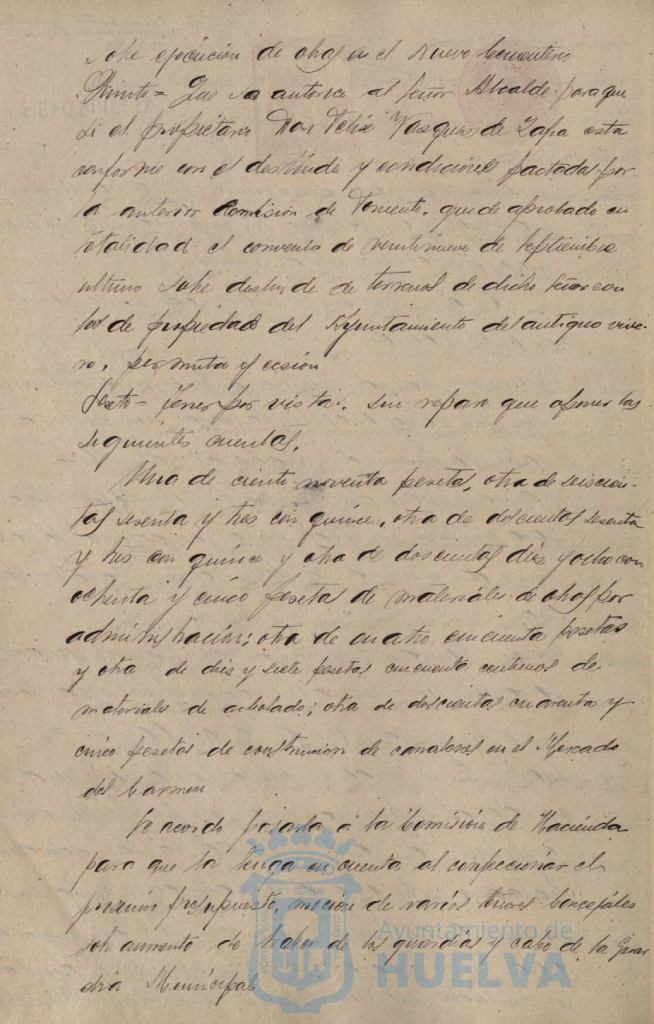 sobre ejecución de obras en el Nuevo Cementerio
Quinto = Que se autorice al Señor Alcalde para que
si el propietario Don Felix Vazquez de Zafra esta
conforme con el deslinde y condiciones pactadas por
la anterior Comision de Fomento, quede aprobado en
totalidad el convenio de veintinueve de Septiembre
ultimo sobre deslinde de terrenos de dicho Señor con
los de propiedad del Ayuntamiento del antiguo vive-
ro, permuta y cesión
Sexto = Tener por vistas, sin reparo que oponer las
siguientes cuentas.
Una de ciento noventa pesetas, otra de seiscien-
tas sesenta y tres con quince, otra de doscientas sesenta
y tres con quince y otra de doscientas diez y ocho con
ochenta y cinco pesetas de materiales de obras por
administración; otra de cuatro cincuenta pesetas
y otra de diez y siete pesetas cincuenta centimos de
materiales de arbolado; otra de doscientas cuarenta y
cinco pesetas de construccion de canalones en el Mercado
del Carmen
Se acordó pasarla á la Comisión de Hacienda
para que la tenga en cuenta al confeccionar el
proximo presupuesto, mocion de varios Señores Concejales
sobre aumento de haber de los guardias y cabo de la Guar
dia Municipal
Ayuntamiento de
HUELVA